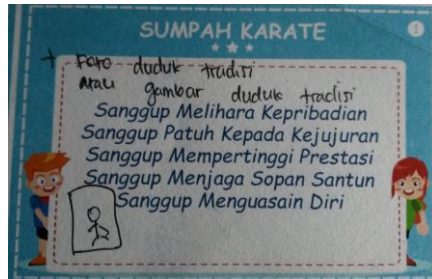 SUMPAH KARATE
1
+ Foto duduk tradisi
Atau gambar duduk tradisi
Sanggup Melihara Kepribadian
Sanggup Patuh Kepada Kejujuran
Sanggup Mempertinggi Prestasi
Sanggup Menjaga Sopan Santun
Sanggup Menguasain Diri